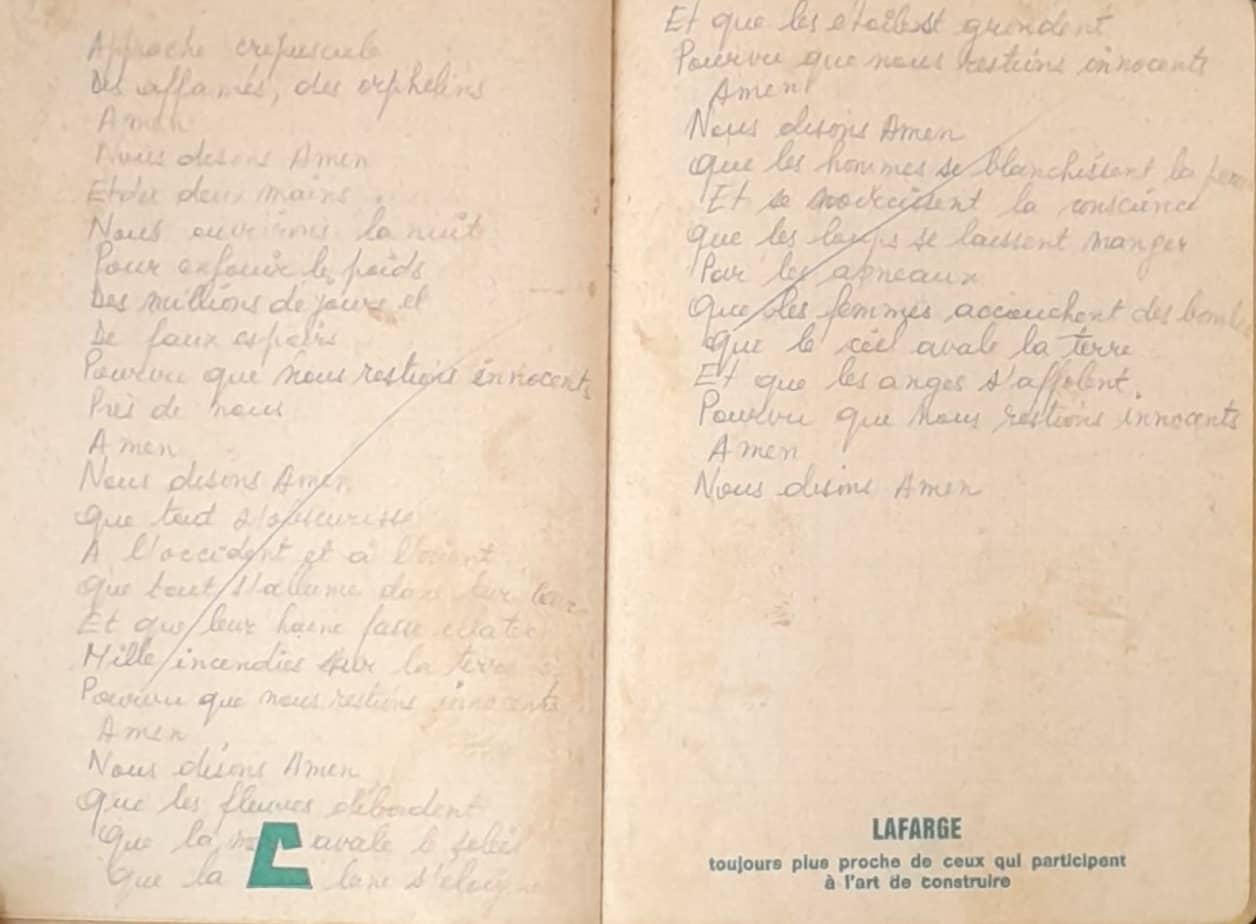 Approche crepuscule
Des affamés, des orphelins
Amen
Nous disons Amen
Et des deux mains
Nous ouvrirons la nuit
Pour enfouir le poids
Des millions de jours et
De faux espoirs
Pourvu que nous restions innocents
Près de nous
Amen
Nous disons Amen
Que tout s'obscurisse
A l'occident et à l'orient
Que tout s'allume dans leur
Et que leur haine fasse éclater
Mille incendies sur la terre
Pourvu que nous restions innocents
Amen
Nous disons Amen
Que les fleuves débordent
Que la avale le soleil
Que la lune s'eloigne
Et que les étoiles grondent
Pourvu que nous restions innocents
Amen
Nous disons Amen
Que les hommes se blanchissent la
Et se noircissent la conscience
Que les loups se laissent manger
Par les agneaux
Que les femmes accouchent des
Que le ciel avale la terre
Et que les anges s'affolent.
Pourvu que nous restions innocents
Amen
Nous disons Amen
LAFARGE
toujours plus proche de ceux qui participent
à l'art de construire